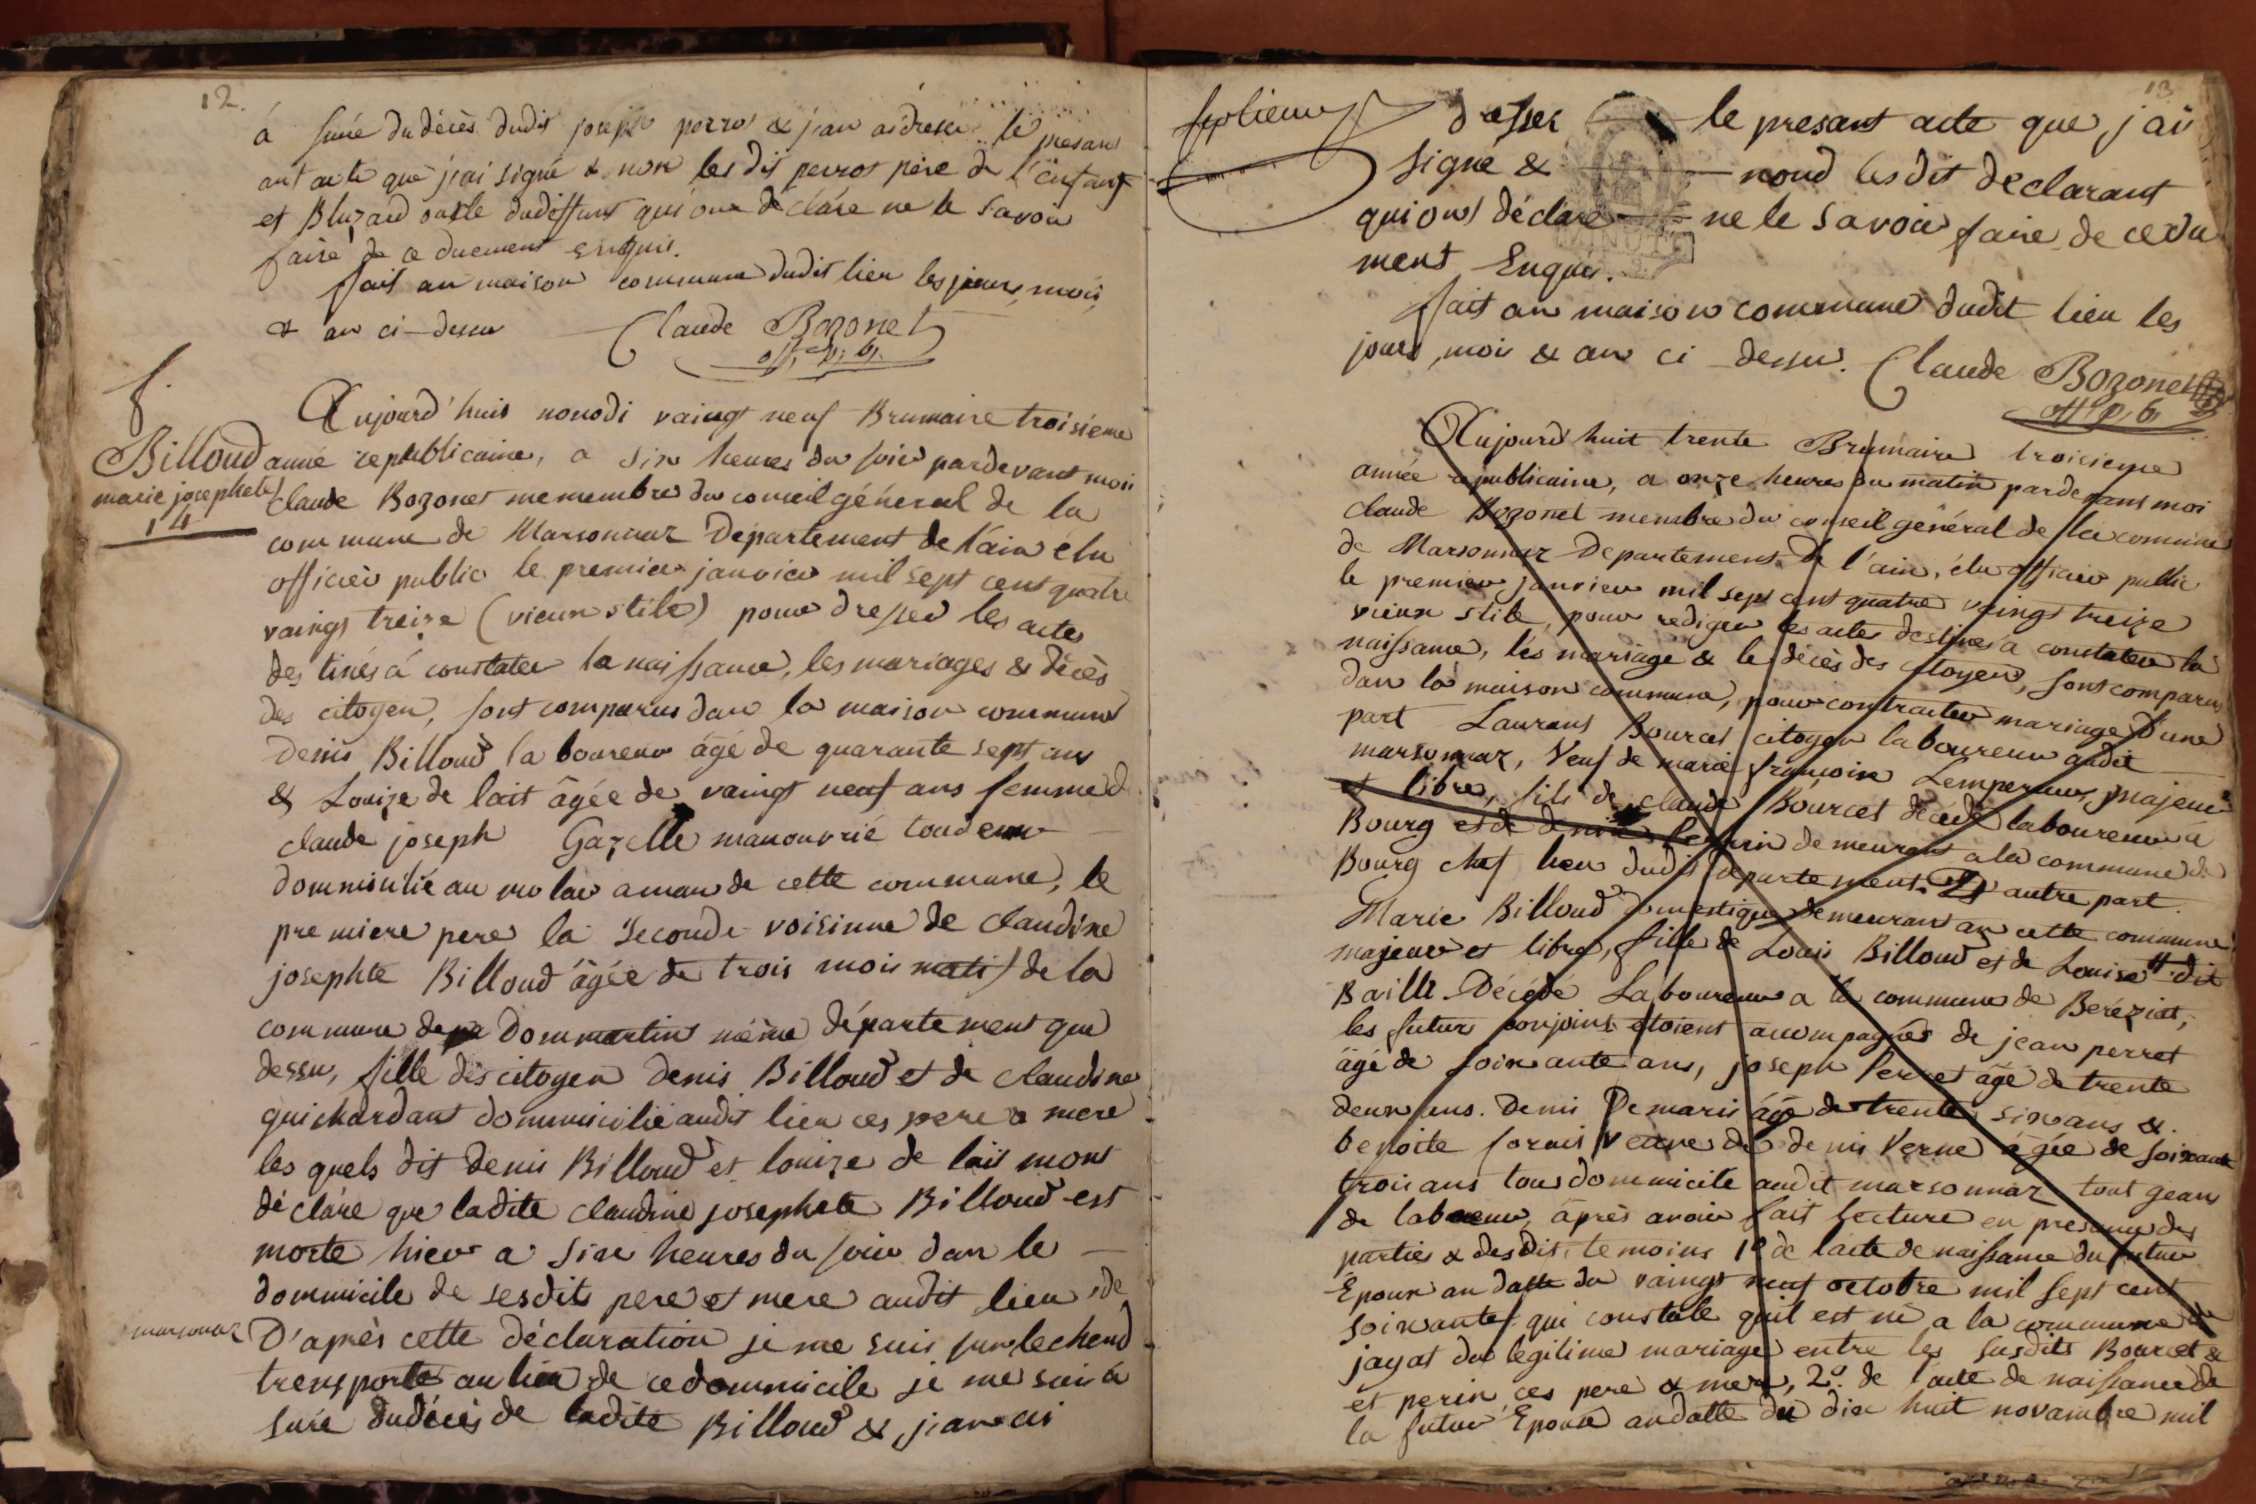 12.
á suré du décès dudit joseph perrot & j'an ai dresé le présant
ant acte que j'ai signé & non les dit perrot père de l'enfant
et Bluzard oncle dudéffunt qui ons déclare ne le savoir
faire de ce duement enquis.
fait an maison commune dudit lieu les jours, mois,
& an ci-dessu Claude Bozonet
off. p. b.
f.
Billoud
marie josephete
14
Aujourd'huis nonodi vaingt neuf Brumaire troisième
année republicaine, a six heures du soir pardevant moi
Claude Bozonet memembre du conseil géneral de la
commune de Marsonnaz Departement de l'ain élu
officièr public le premier janvier mil sept cent quatre
vaingt treize (vieux stile) pour dresser les actes
des tinés á constater la naissance, les mariages & décès
des citoyen, sont comparus dan la maison commune
Denis Billoud laboureur âgé de quarante sept ans
& Louize de lait âgée de vaingt neuf ans femme d
claude joseph Gazelle manouvrié toudeux
dommicilié au molar aman de cette commune, le
premiere pere la seconde voisinne de claudine
josephte Billoud âgée de trois mois natif de la
commune de Dommartin même département que
dessu, fille des citoyen Denis Billoud et de claudine
guichardant dommicilié audit lieu ces pere & mere
les quels dit denis Billoud et louize de lait mont
déclaré que ladite claudine josephete Billoud est
morte hier a six heures du soir dan le
dommicile de sesdits pere et mere audit lieu de
marsonaz D'après cette déclaration je me suis sur lechend
transporté au lieu de ce dommicile je me suis a
suré dudécès de ladite Billoud & j'an ai
13
dresser le presant acte que j'ai
signé & nond lesdit declarant
qui ons déclaré ne le savoir faire de cedu
ment Enquis.
fait an maison commune dudit lieu les
jours, moi & an ci-dessu. Claude Bozonet
off p. b.
Aujourd'huit trente Brumaire troisieme
année republicaine, a onze heures du matin pardevant moi
claude Bozonet membre du conseil général de la comune
de Marsonnaz Departement de l'ain, élu officier public
le premier janvier mil sept cent quatre vaingt treize
vieux stile, pour rediger les actes destinés a constater la
naissance, les mariage & les décès des citoyen, sont comparu
dan la maison commune, pour contracter mariage D'une
part Laurent Bourcet citoyen laboureur audit
marsonnaz, Veuf de marie françoise Lempereur, majeur
et libre, fils de claude Bourcet décédé laboureur a
Bourg et de denise perrin demeurant a la commune de
Bourg chef lieu dudit departement. D autre part.
Marie Billoud domestique demeurant an cette commune
majeure et libre, fille de Louis Billoud et de Louise dit
Baille. Décédé Laboureur a la commune de Beréziat,
les futur conjoint étoient acompagnés de jean perret
âgé de soixante ans, joseph perret âgé de trente
deux ans. Denis Demaris âgé de trente six ans &.
benoite forais veuve de denis Verne âgée de soixante
trois ans tous dommicilé audit marsonnaz tout gean
de labeur, âprès avoir fait lecture en presance des
parties & desdits temoins 1º de l'acte de naissance du futur
Epoux an datte du vaingt neuf octobre mil sept cent
soixante qui constate qu'il est né a la commune de
jayat du légitime mariage entre les susdits Bourcet &
et perin, ces pere & mere, 2º. de l'acte de naissance de
la futur Epouse andatte du dix huit novambre mil